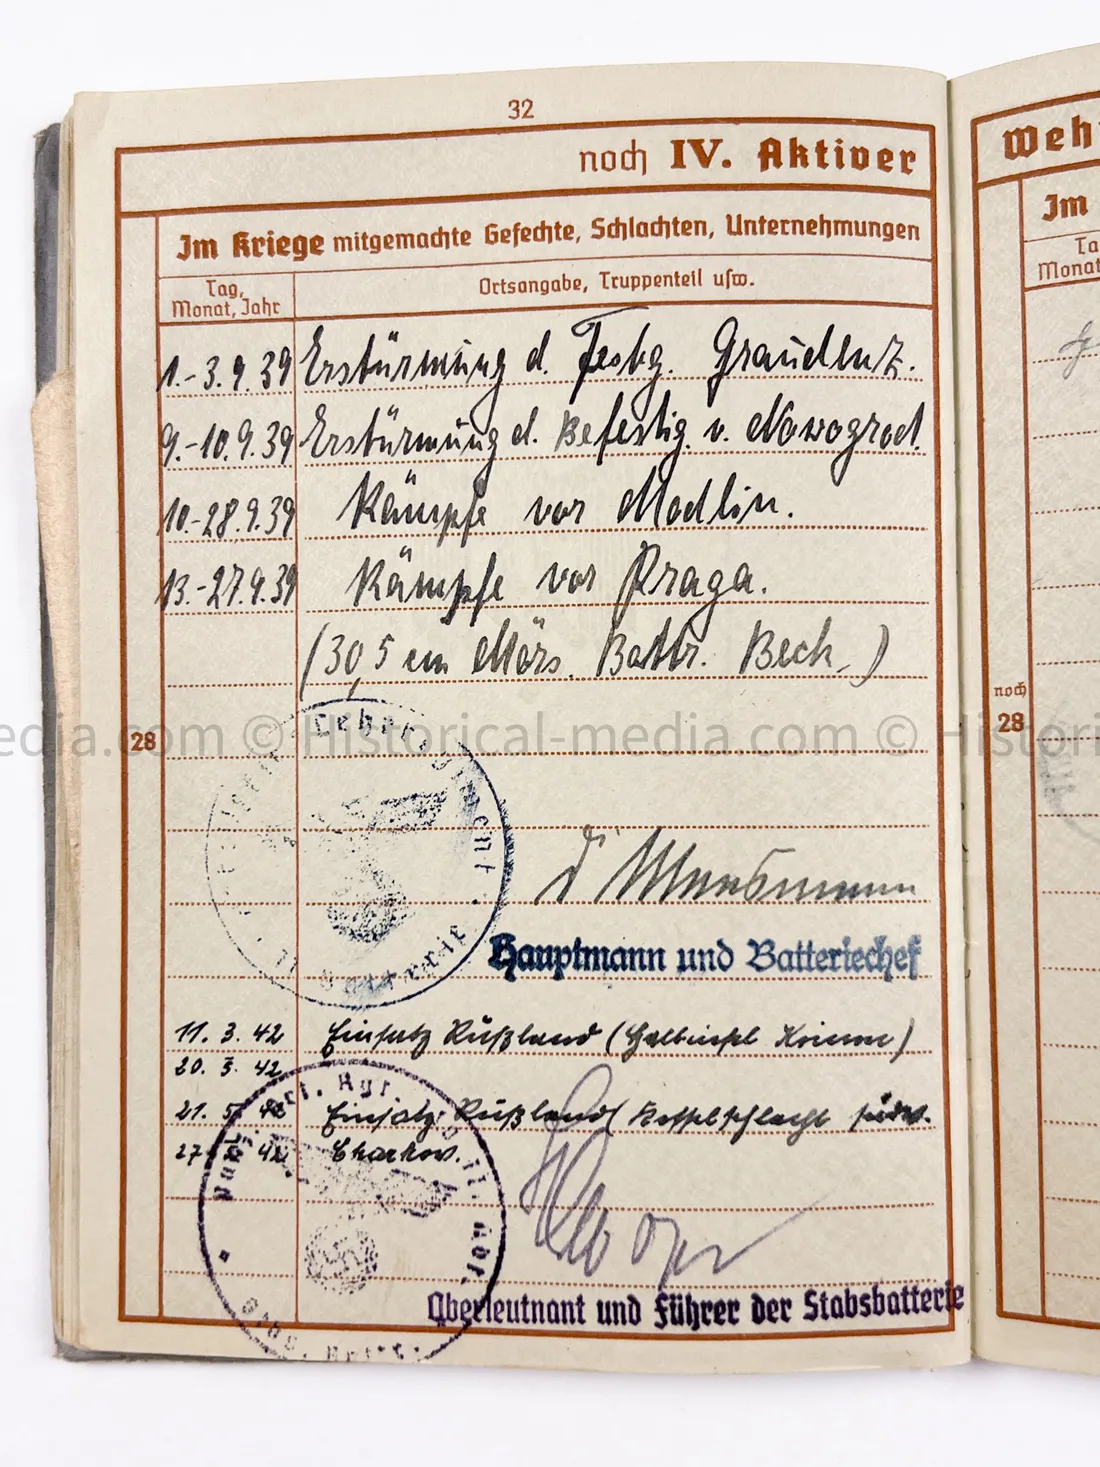 32
noch IV. Aktiver
Weh
Im Kriege mitgemachte Gefechte, Schlachten, Unternehmungen
Im
Tag, Monat, Jahr
Ortsangabe, Truppenteil usw.
Ta
Monat
1.-3.9.39 Erstürmung d. Festg. Graudenz.
9.-10.9.39 Erstürmung d. Befestig. v. Nowogrod.
10.-28.9.39 Kämpfe vor Modlin.
13.-27.9.39 Kämpfe vor Praga.
(30,5 cm Mörs. Battr. Beck.)
noch
28
28
edia.com © Historical-media.com © Histori
Hauptmann und Batteriechef
11. 3. 42 Einsatz Rußland (Halbinsel Krimm)
20. 3. 42
21. 5. 42 Einsatz Rußland Kesselschlacht südw.
27. 42 Charkow.
Oberleutnant und Führer der Stabsbatterie